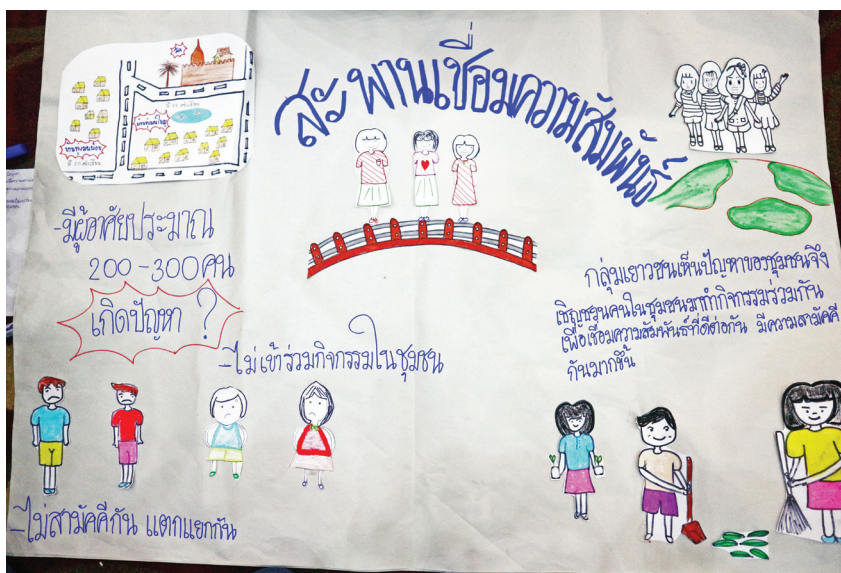 สะพานเชื่อมความสัมพันธ์
วัด
-มีผู้อาศัยประมาณ
200-300คน
เกิดปัญหา ?
-ไม่เข้าร่วมกิจกรรมในชุมชน
-ไม่สามัคคีกัน แตกแยกกัน
กลุ่มเยาวชนเห็นปัญหาของชุมชนจึง
เชิญชวนคนในชุมชนมาทำกิจกรรมร่วมกัน
เพื่อเชื่อมความสัมพันธ์ที่ดีต่อกัน มีความสามัคคี
กันมากขึ้น